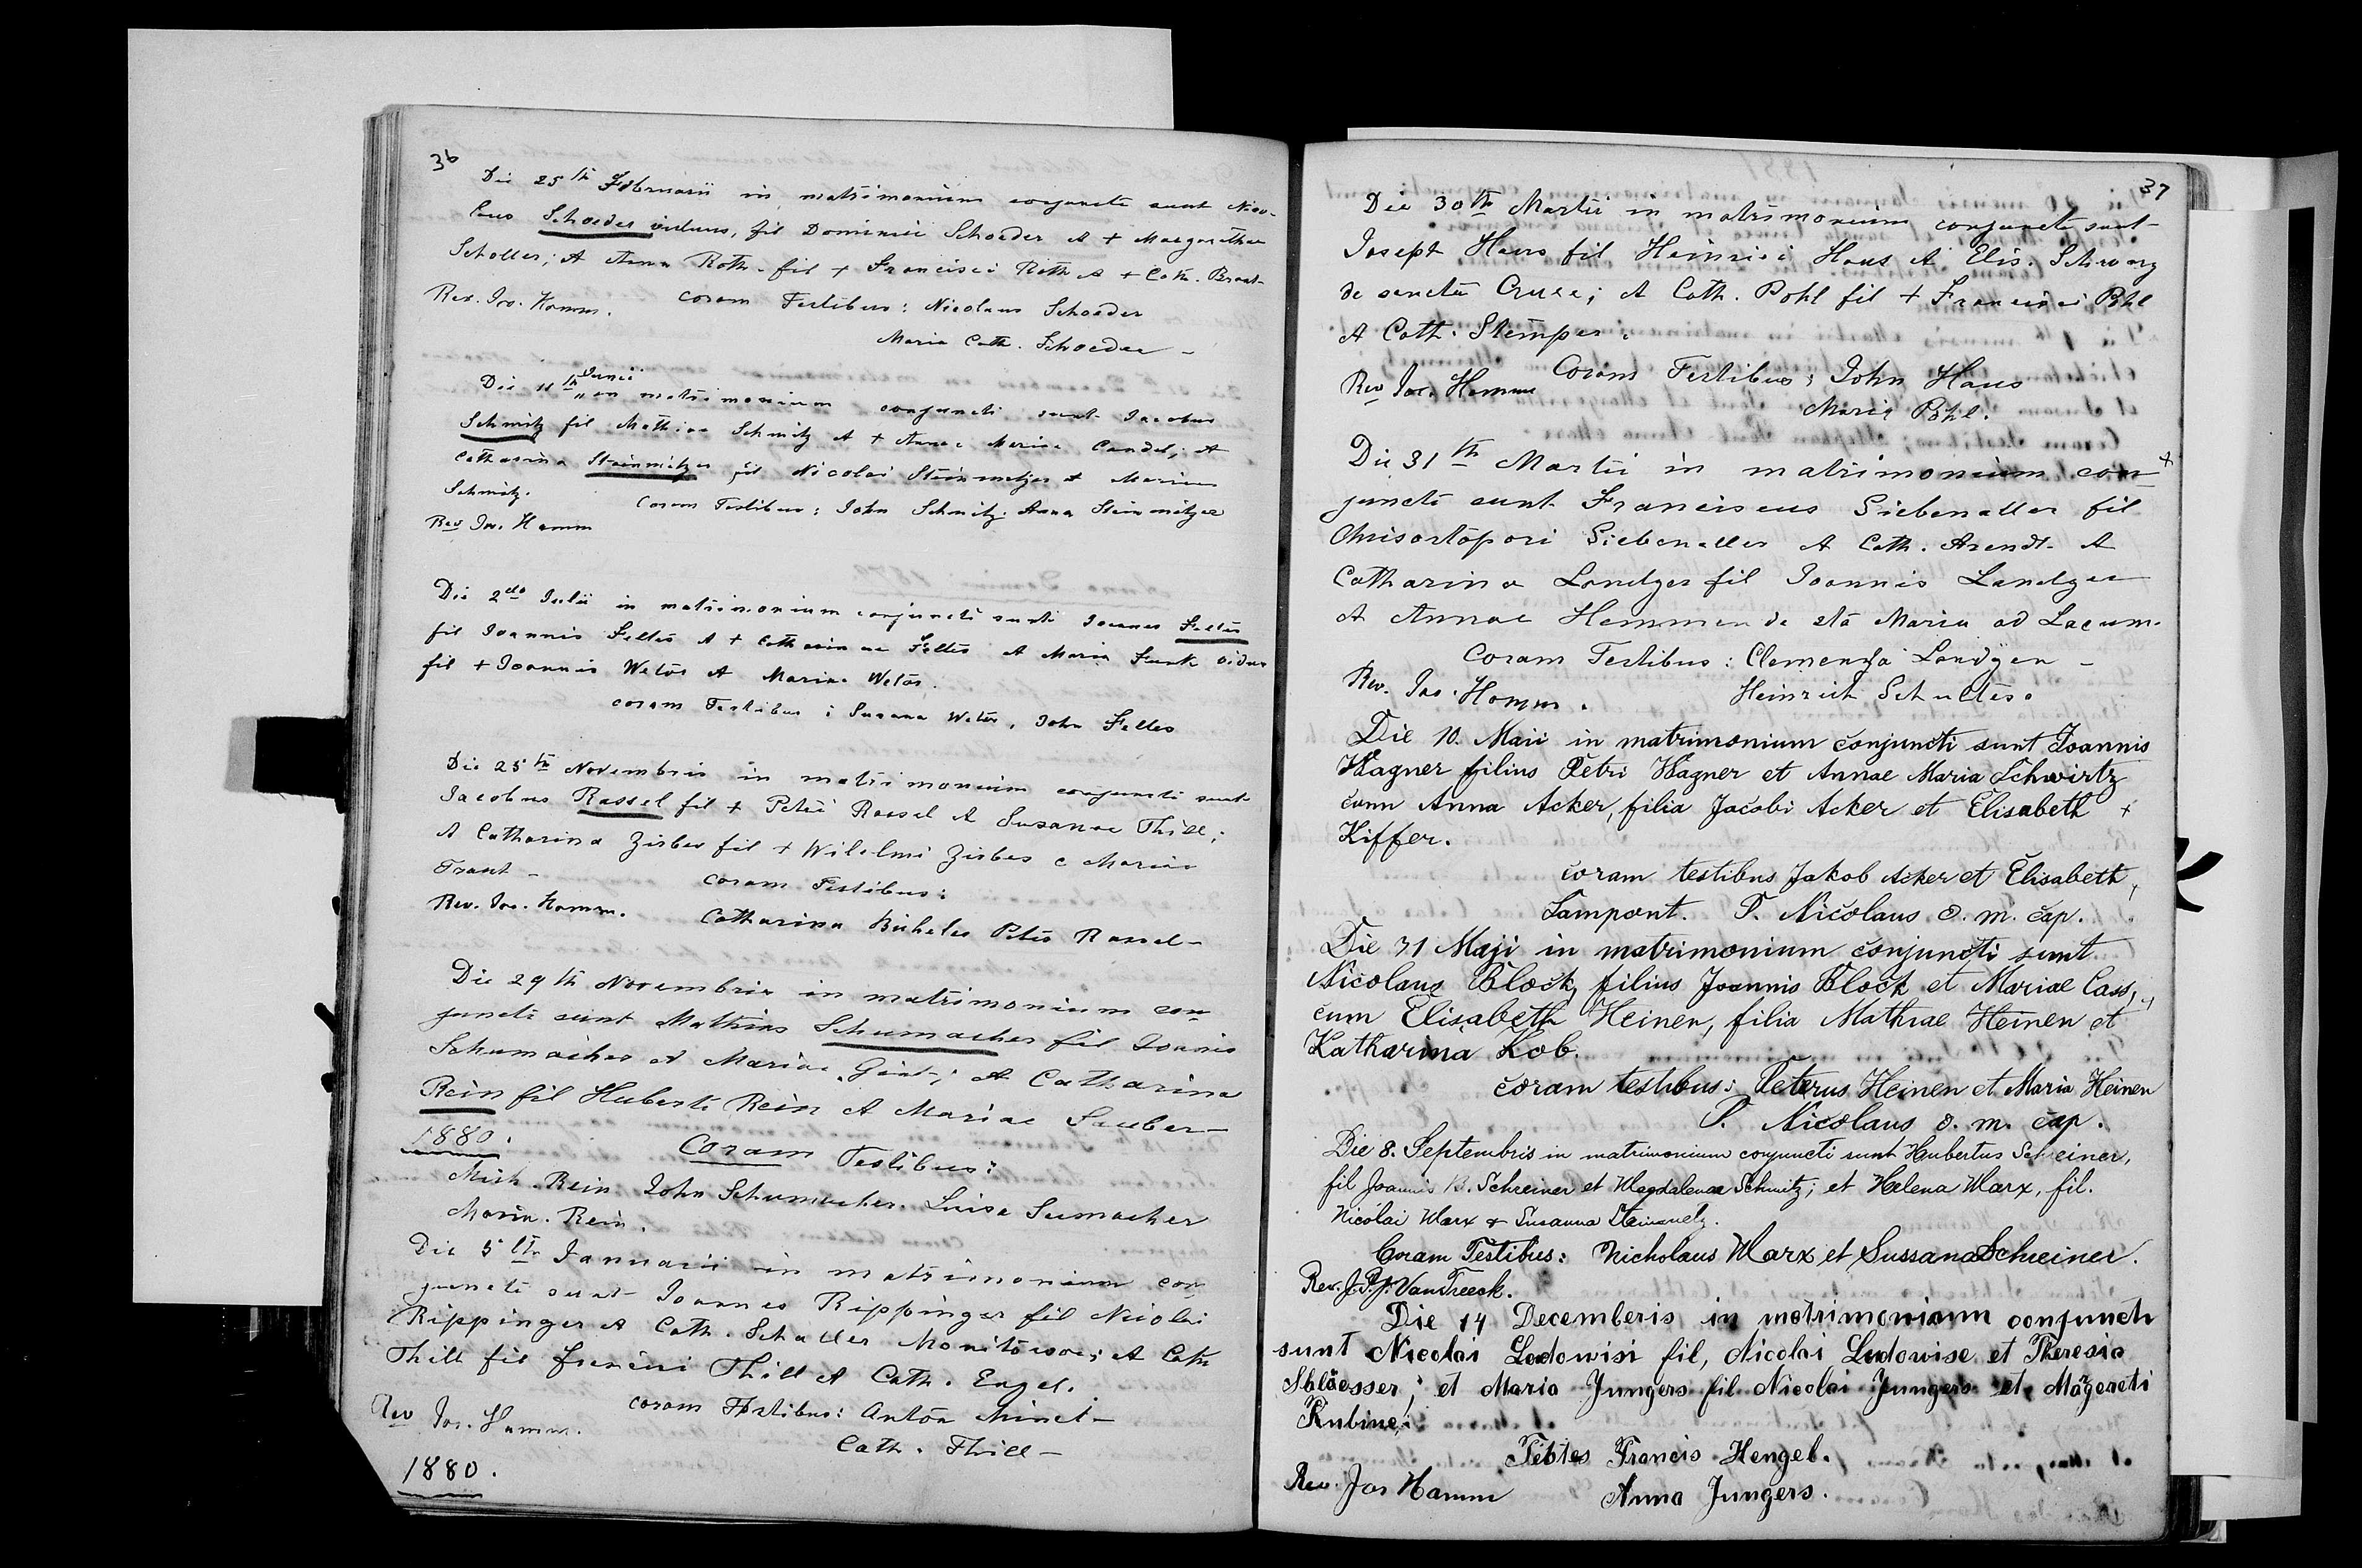 36
Die 25th Februarii in matrimonium conjuncti sunt Nico-
laus Schoeder viduus, fil Dominici Schoeder et + Margarethae
Scholler; et Anna Roth. fil + Francisci Roth et + Cath. Braat-
Rev. Jos. Hamm. Coram Testibus: Nicolaus Schoeder
Maria Cath. Schoeder -
Die 11th Junii in matrimonium conjuncti sunt Jacobus
Schmitz fil Mathiae Schmitz et + Annae Mariae Candel; et
Catharina Steinmetzer fil Nicolai Steinmetzer et Mariae
Schmitz. Coram Testibus: John Schmitz. Anna Steinmetzer
Rev Jos. Hamm
Die 2do Julii in matrimonium conjuncti sunt Joannes Feltes
fil Joannis Feltes et + Catharinae Feltes et Maria Funk vidua
fil + Joannis Weter et Mariae Weter.
coram Testibus: Susana Weter, John Feltes
Die 25th Novembris in matrimonium conjuncti sunt
Jacobus Rassel fil + Petri Rassel et Susanae Thill;
et Catharina Zirbes fil + Wilelmi Zirbes e Mariae
Traut - Coram Testibus:
Rev. Jos. Hamm. Catharina Bicheler Peter Rassel -
Die 29th Novembris in matrimonium con
juncti sunt Mathias Schumacher fil Joanis
Schumacher et Mariae Gint-; et Catharina
Rein fil Huberti Rein et Mariae Sauber-
1880. Coram Testibus:
Mich. Rein. John Schumacher. Luisa Sumacher
Maria. Rein.
Die 5th Januarii in matrimonium con
juncti sunt Joannes Rippinger fil Nicolai
Rippinger et Cath. Schaller Monitowoc; et Cath
Thill fil francisci Thill et Cath. Engel.
Rev Jos. Hamm. coram Testibus: Anton Minet-
Cath. Thill -
1880.
37
Die 30th Martii in matrimonium conjuncti sunt-
Joseph Haus fil Heinrici Haus et Elis. Schwarz
de sancta Cruce; et Cath. Pohl fil + Francisci Pohl
et Cath. Stemper.
Rev Jos. Hamm Coram Testibus: John Haus
Maria Pohl.
Die 31th Martii in matrimonium con +
juncti sunt Franciscus Siebenaller fil
Chrisortopori Siebenaller et Cath. Arendt- et
Catharina Landger fil Joannis Landger
et Annae Hemmen de sta Maria ad Lacum.
Coram Testibus: Clementia Landgen -
Rev. Jos. Hamm. Heinrich Schultes.
Die 10. Maii in matrimonium conjuncti sunt Joannis
Wagner filius Petri Wagner et Annae Maria Schwirtz
cum Anna Acker, filia Jacobi Acker et Elisabeth +
Kiffer.
coram testibus Jakob Acker et Elisabeth
Lampont. P. Nicolaus O. m. cap.
Die 31 Maji in matrimonium conjuncti sunt
Nicolaus Block, filius Joannis Block et Mariae Cass,
cum Elisabeth Heinen, filia Mathiae Heinen et
Katharina Kob.
coram testibus: Peterus Heinen et Maria Heinen
P. Nicolaus O. m. cap.
Die 8. Septembris in matrimonium conjuncti sunt Hubertus Schreiner,
fil Joannis B. Schreiner et Magdalenae Schmitz; et Helena Marx, fil.
Nicolai Marx & Susanna Steinmetz.
Coram Testibus: Nicholaus Marx et Sussana Schreiner.
Rev. J. P. J. Van Treeck.
Die 14 Decemberis in motrimoniom conjuncti
sunt Nicolai Lodowisi fil, Nicolai Ludowise et Theresia
Schloesser; et Maria Jungers fil Nicolai Jungers et Margereti
Rubine;
Testes Francis Hengel.
Rev. Jos Hamm Anna Jungers.